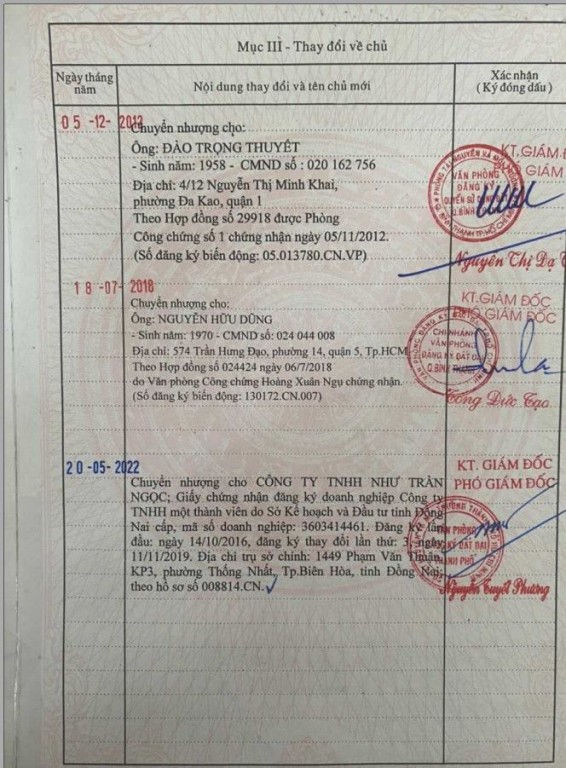 Mục III - Thay đổi về chủ
Ngày tháng năm
Nội dung thay đổi và tên chủ mới
Xác nhận
(Ký đóng dấu)
05-12-2012
Chuyển nhượng cho:
Ông: ĐÀO TRỌNG THUYẾT
- Sinh năm: 1958 - CMND số : 020 162 756
Địa chỉ: 4/12 Nguyễn Thị Minh Khai,
phường Đa Kao, quận 1
Theo Hợp đồng số 29918 được Phòng
Công chứng số 1 chứng nhận ngày 05/11/2012.
(Số đăng ký biến động: 05.013780.CN.VP)
KT.GIÁM Đ
GIÁM
VĂN PHÒNG
ĐĂNG KÝ
Nguyễn Thị Dạ T
18-07-2018
Chuyển nhượng cho:
Ông: NGUYỄN HỮU DŨNG
- Sinh năm: 1970 - CMND số: 024 044 008
Địa chỉ: 574 Trần Hưng Đạo, phường 14, quận 5, Tp.HCM
Theo Hợp đồng số 024424 ngày 06/7/2018
do Văn phòng Công chứng Hoàng Xuân Ngụ chứng nhận.
(Số đăng ký biến động: 130172.CN.007)
KT.GIÁM ĐỐC
PHÓ GIÁM ĐỐC
CHI NHÁNH
VĂN PHÒNG
ĐĂNG KÝ ĐẤT ĐAI
Q.BÌNH THẠNH
Tống Đức Tạo
20-05-2022
Chuyển nhượng cho CÔNG TY TNHH NHƯ TRẦN
NGỌC; Giấy chứng nhận đăng ký doanh nghiệp Công ty
TNHH một thành viên do Sở Kế hoạch và Đầu tư tỉnh Đồng
Nai cấp, mã số doanh nghiệp: 3603414461. Đăng ký lần
đầu: ngày 14/10/2016, đăng ký thay đổi lần thứ: 3, ngày
11/11/2019. Địa chỉ trụ sở chính: 1449 Phạm Văn Thuận,
KP3, phường Thống Nhất, Tp.Biên Hòa, tỉnh Đồng Nai;
theo hồ sơ số 008814.CN.
KT. GIÁM ĐỐC
PHÓ GIÁM ĐỐC
VĂN PHÒNG
ĐĂNG KÝ ĐẤT ĐAI
THÀNH PHỐ
Nguyễn Tuyết Phương